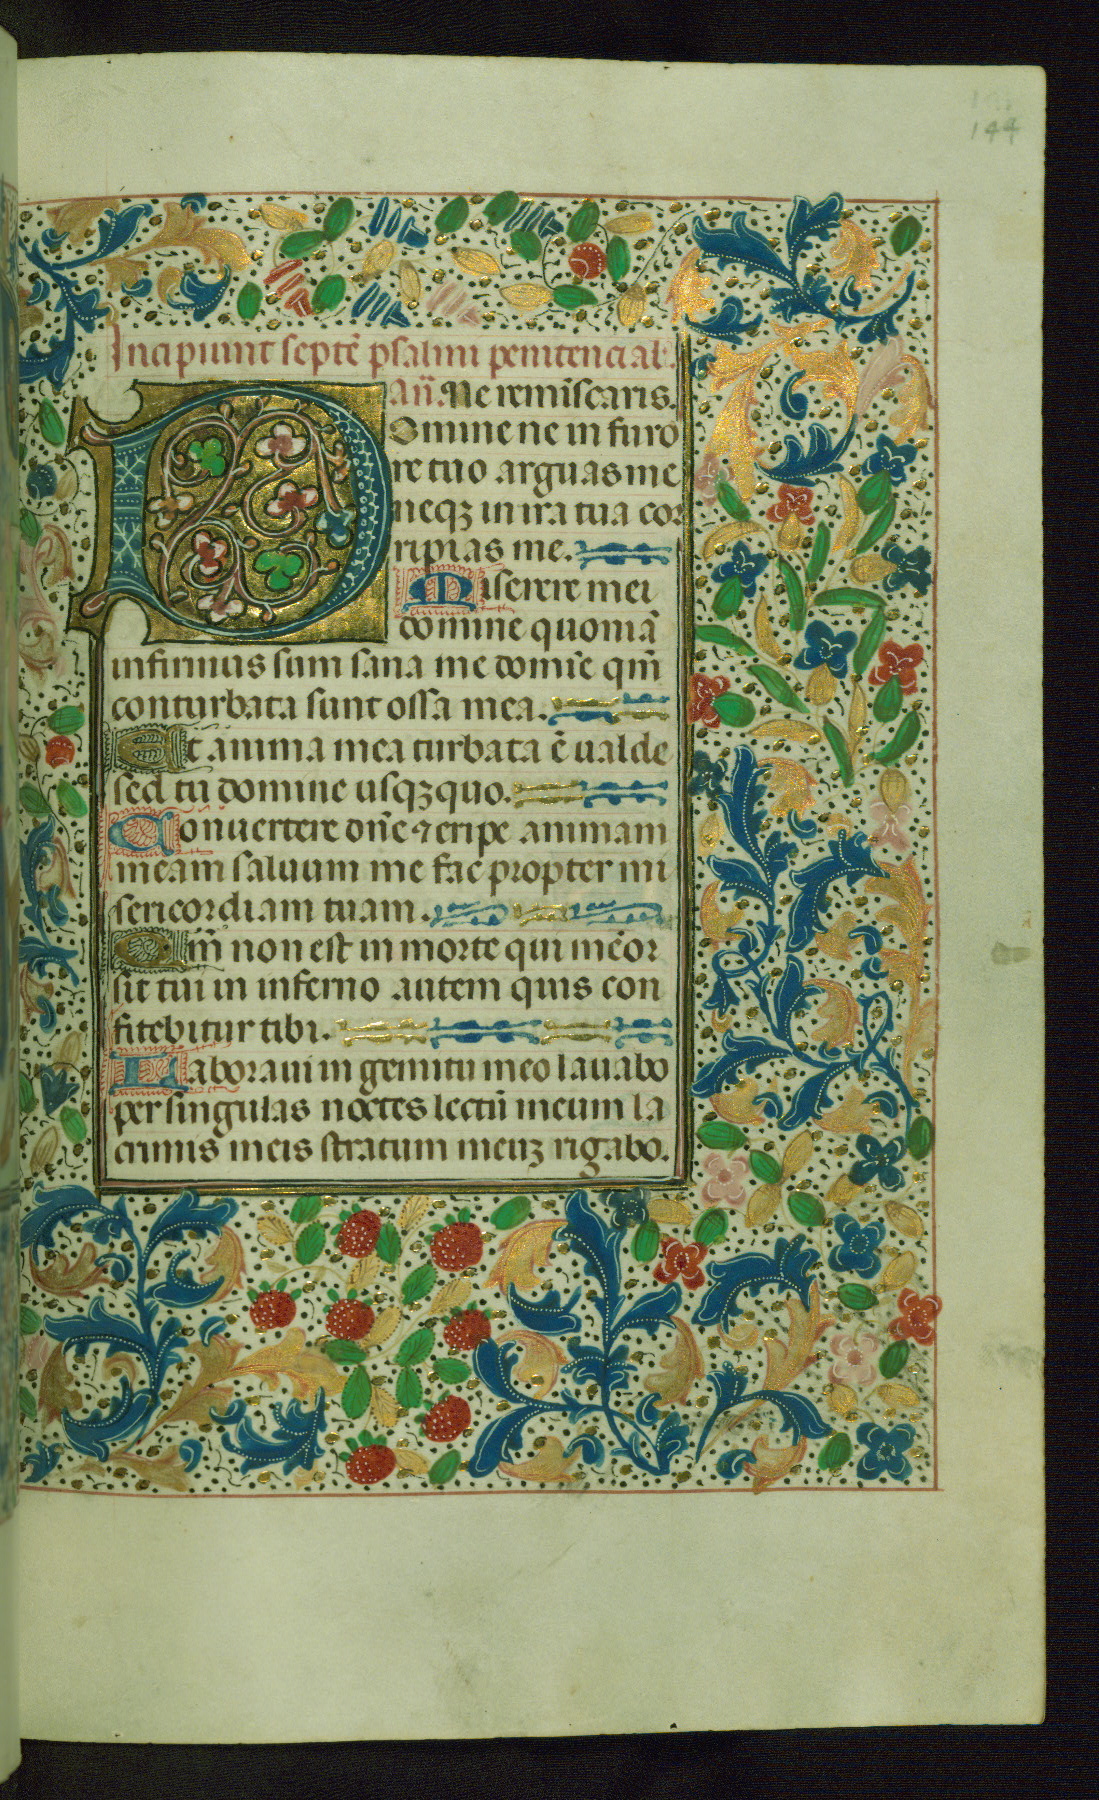 144
Incipiunt septē psalmi penitencial
añ. Ne remīscaris.
Domine ne in furo
re tuo arguas me
neqꝫ in ira tua cor
ripias me.
Miserere mei
domine quoniā
infirmus sum sana me domīe qm̄
conturbata sunt ossa mea.
Et anima mea turbata ē ualde
sed tu domine usqꝫquo.
Conuertere dn̄e ⁊ eripe animam
meam saluum me fac propter mi
sericordiam tuam.
Qm̄ non est in morte qui mēor
sit tui in inferno autem quis con
fitebitur tibi.
Laboraui in gemitu meo lauabo
per singulas noctes lectū meum la
crimis meis stratum meuꝫ rigabo.